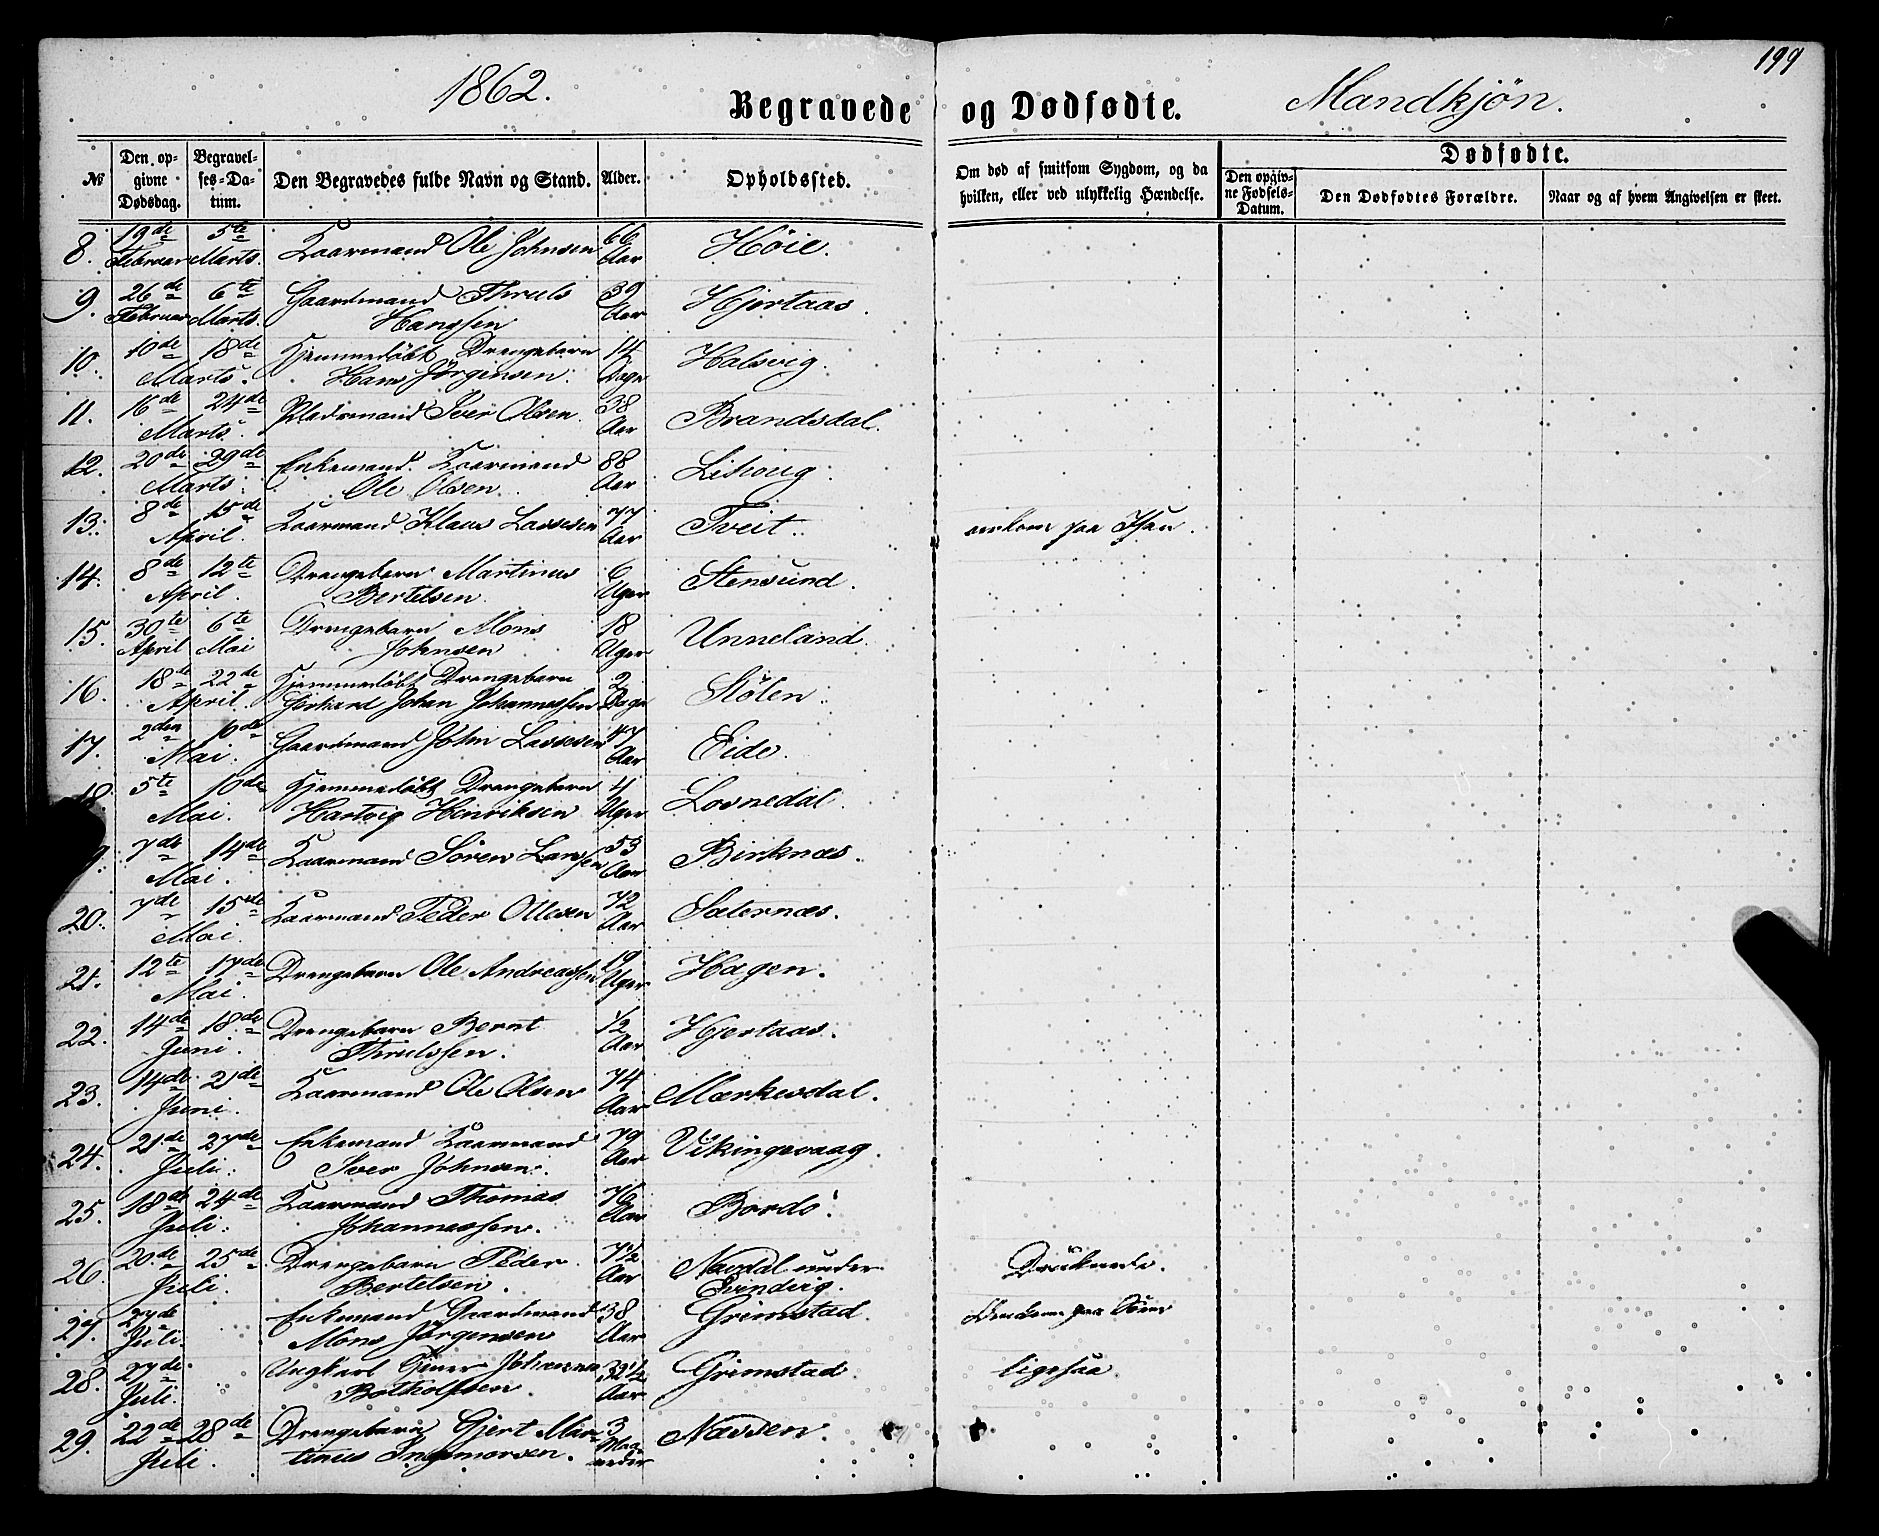 199
1862.
Begravede og Dødfødte.
Mandkjön.
№
Den opgivne Dødsdag.
Begravelses-Datum.
Den Begravedes fulde Navn og Stand.
Alder.
Opholdssted.
Om død af smitsom Sygdom, og da hvilken, eller ved ulykkelig Hændelse.
Dødfødte.
Den opgivne Fødsels-Datum.
Den Dødfødtes Forældre.
Naar og af hvem Angivelsen er skeet.
8. 19de Februar 5te Marts. Kaarmand Ole Johnsen 66 Aar Höie.
9. 26de Februar 6te Marts. Gaardmand Thruls Hanssen 39 Aar Hjertaas.
10. 10de 18de Marts. Hjemmedöbt Drengebarn Hans Jörgensen. 14 Dage Halsvig.
11. 16de 24de Marts. Iver Olsen. 38 Aar Brandsdal.
12. 20de 29de Marts. Enkemand Kaarmand Ole Olsen. 88 Aar
13. 8de 15de April. Kaarmand Klaus Lassesen 77 Aar Tveit. omkom paa
14. 8de 12te April. Drengebarn Martinus Bertelsen. 6 Uger Stensund.
15. 30te April 6te Mai Drengebarn Mons Johnsen 18 Uger Unneland.
16. 18de 22de April. Hjemmedöbt Drengebarn Gerhard Johan Johannessen 2 Dage Stölen.
17. 2den 10de Mai. Gaardmand John Lassesen 47 Aar Eide.
18 5te 10de Mai. Hjemmedöbt Drengebarn Hartvig Hinriksen 4 Uger Losnedal.
9. 7de 14de Mai. Kaarmand Sören Larssen 53 Aar Birknæs.
20. 7de 15de Mai. Kaarmand Peder Ottesen 72 Aar Sæternæs.
21. 12te 17de Mai. Drengebarn Ole Andreassen 19 Uger Hagen.
22. 14de 18de Juni. Drengebarn Bernt Thrulssen. 1/2 Aar Hjertaas.
23. 14de 21de Juni. Kaarmand Ole Olsen 74 Aar Mærkesdal.
24. 21de 27de Juli. Enkemand Kaarmand Iver Johnsen. 79 Aar Vikingevaag.
25. 18de 24de Juli. Kaarmand Thomas Johannessen. 76 Aar Bordö.
26. 20de 25de Juli. Drengebarn Peder Bertelsen. 7 1/2 Aar Navdal under Evindvig. Druknede.
27. 27de Juli. Enkemand Gaardmand Mons Jörgensen 38 Aar Grimstad. Omkom paa Söen
28. 27de Juli. Ungkarl Johannes Botholfsen. 32 1/2 Aar Grimstad. ligesaa.
29. 22de 28de Juli. Drengebarn Gjert Martinus Ingemorsen. 3 Maaneder Næssen.